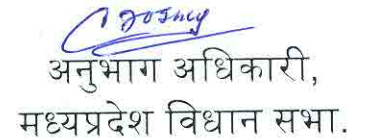 अनुभाग अधिकारी,
मध्यप्रदेश विधान सभा.